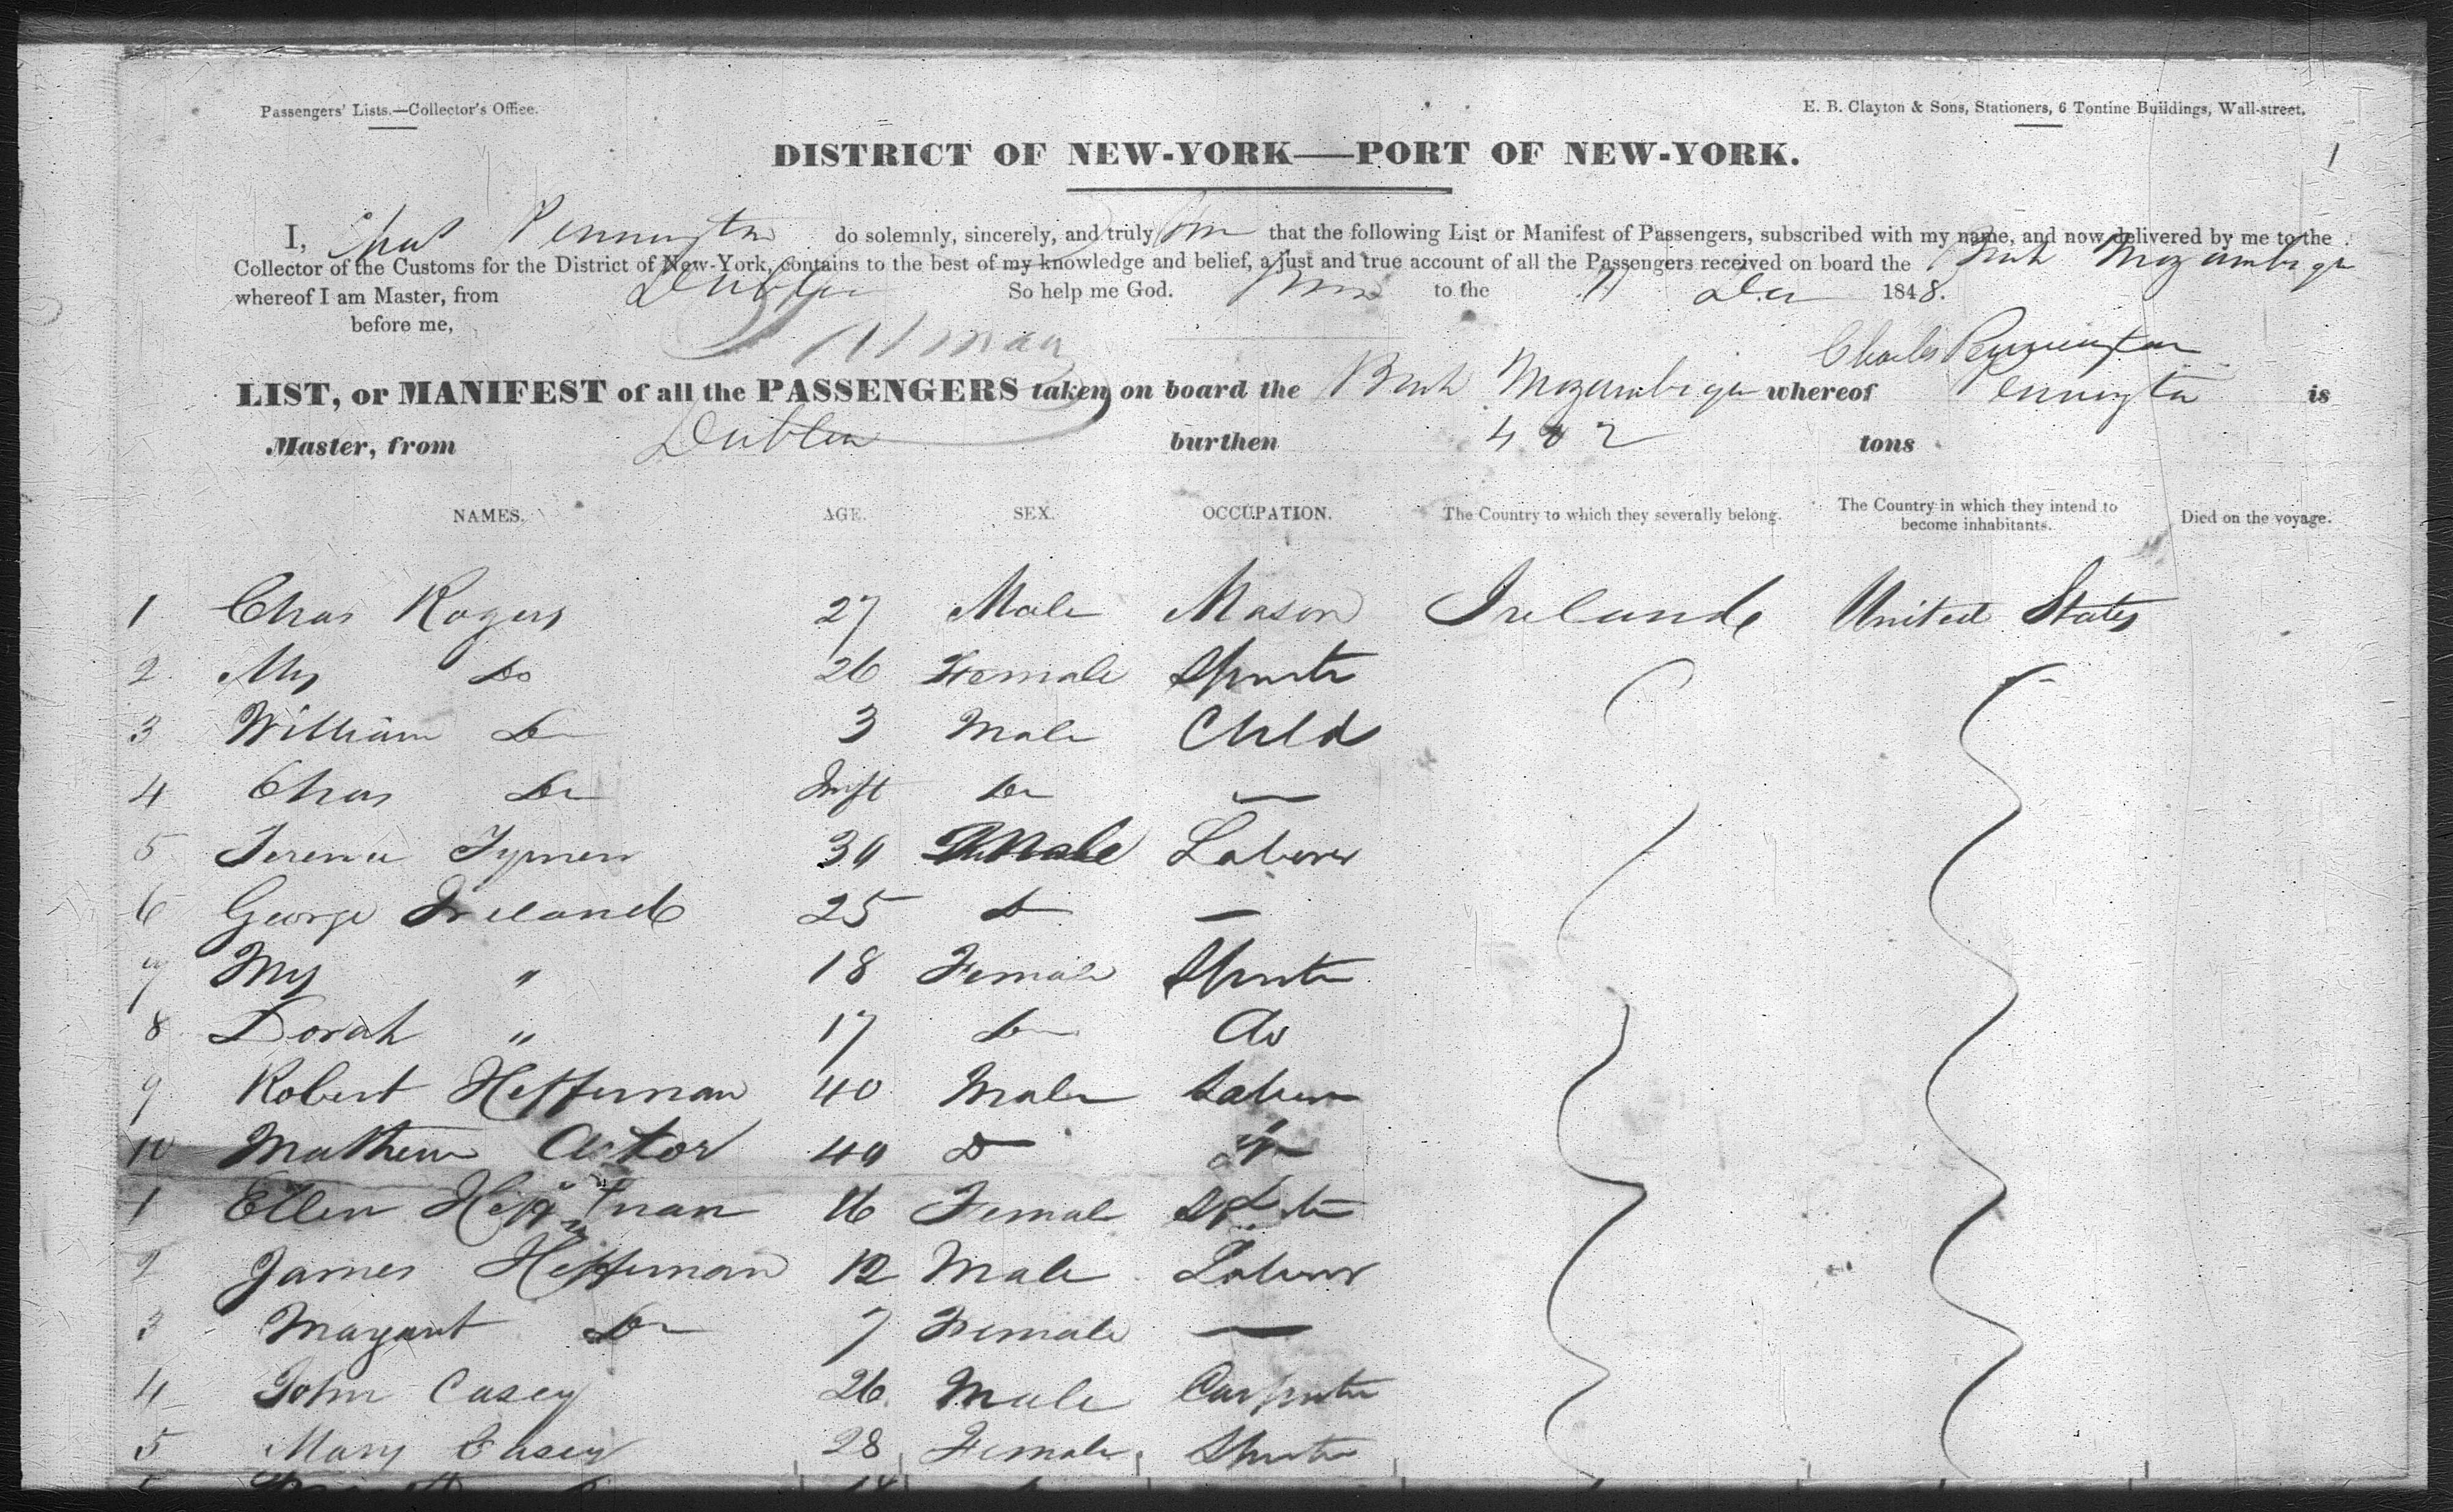 Passengers' Lists.—Collector's Office.
E. B. Clayton & Sons, Stationers, 6 Tontine Buildings, Wall-street.
DISTRICT OF NEW-YORK—PORT OF NEW-YORK.
1
I, Chas Pennington do solemnly, sincerely, and truly that the following List or Manifest of Passengers, subscribed with my name, and now delivered by me to the
Collector of the Customs for the District of New-York, contains to the best of my knowledge and belief, a just and true account of all the Passengers received on board the Bark Mozambique
whereof I am Master, from Dublin So help me God. to the Dec 1848.
before me,
Charles Pennington
LIST, or MANIFEST of all the PASSENGERS taken on board the Bark Mozambique whereof Pennington is
Master, from Dublin burthen tons
NAMES. AGE. SEX. OCCUPATION. The Country to which they severally belong. The Country in which they intend to become inhabitants. Died on the voyage.
1 Chas Rogers 27 Male Mason Ireland United States
2 Mrs Do 26 Female Spinster
3 William Do 3 Male Child
4 Chas Do Inft Do —
5 30 Male Laborer
6 George Ireland 25 Do —
7 Mrs " 18 Female Spinster
8 Dorah " 17 Do Do
9 Robert Heffernan 40 Male Laborer
10 Mathew 40 Do "
1 Ellen Heffernan 16 Female
2 James Heffernan 12 Male Laborer
3 Margaret Do 7 Female —
4 John Casey 26 Male Carpenter
5 Mary Casey 28 Female Spinster